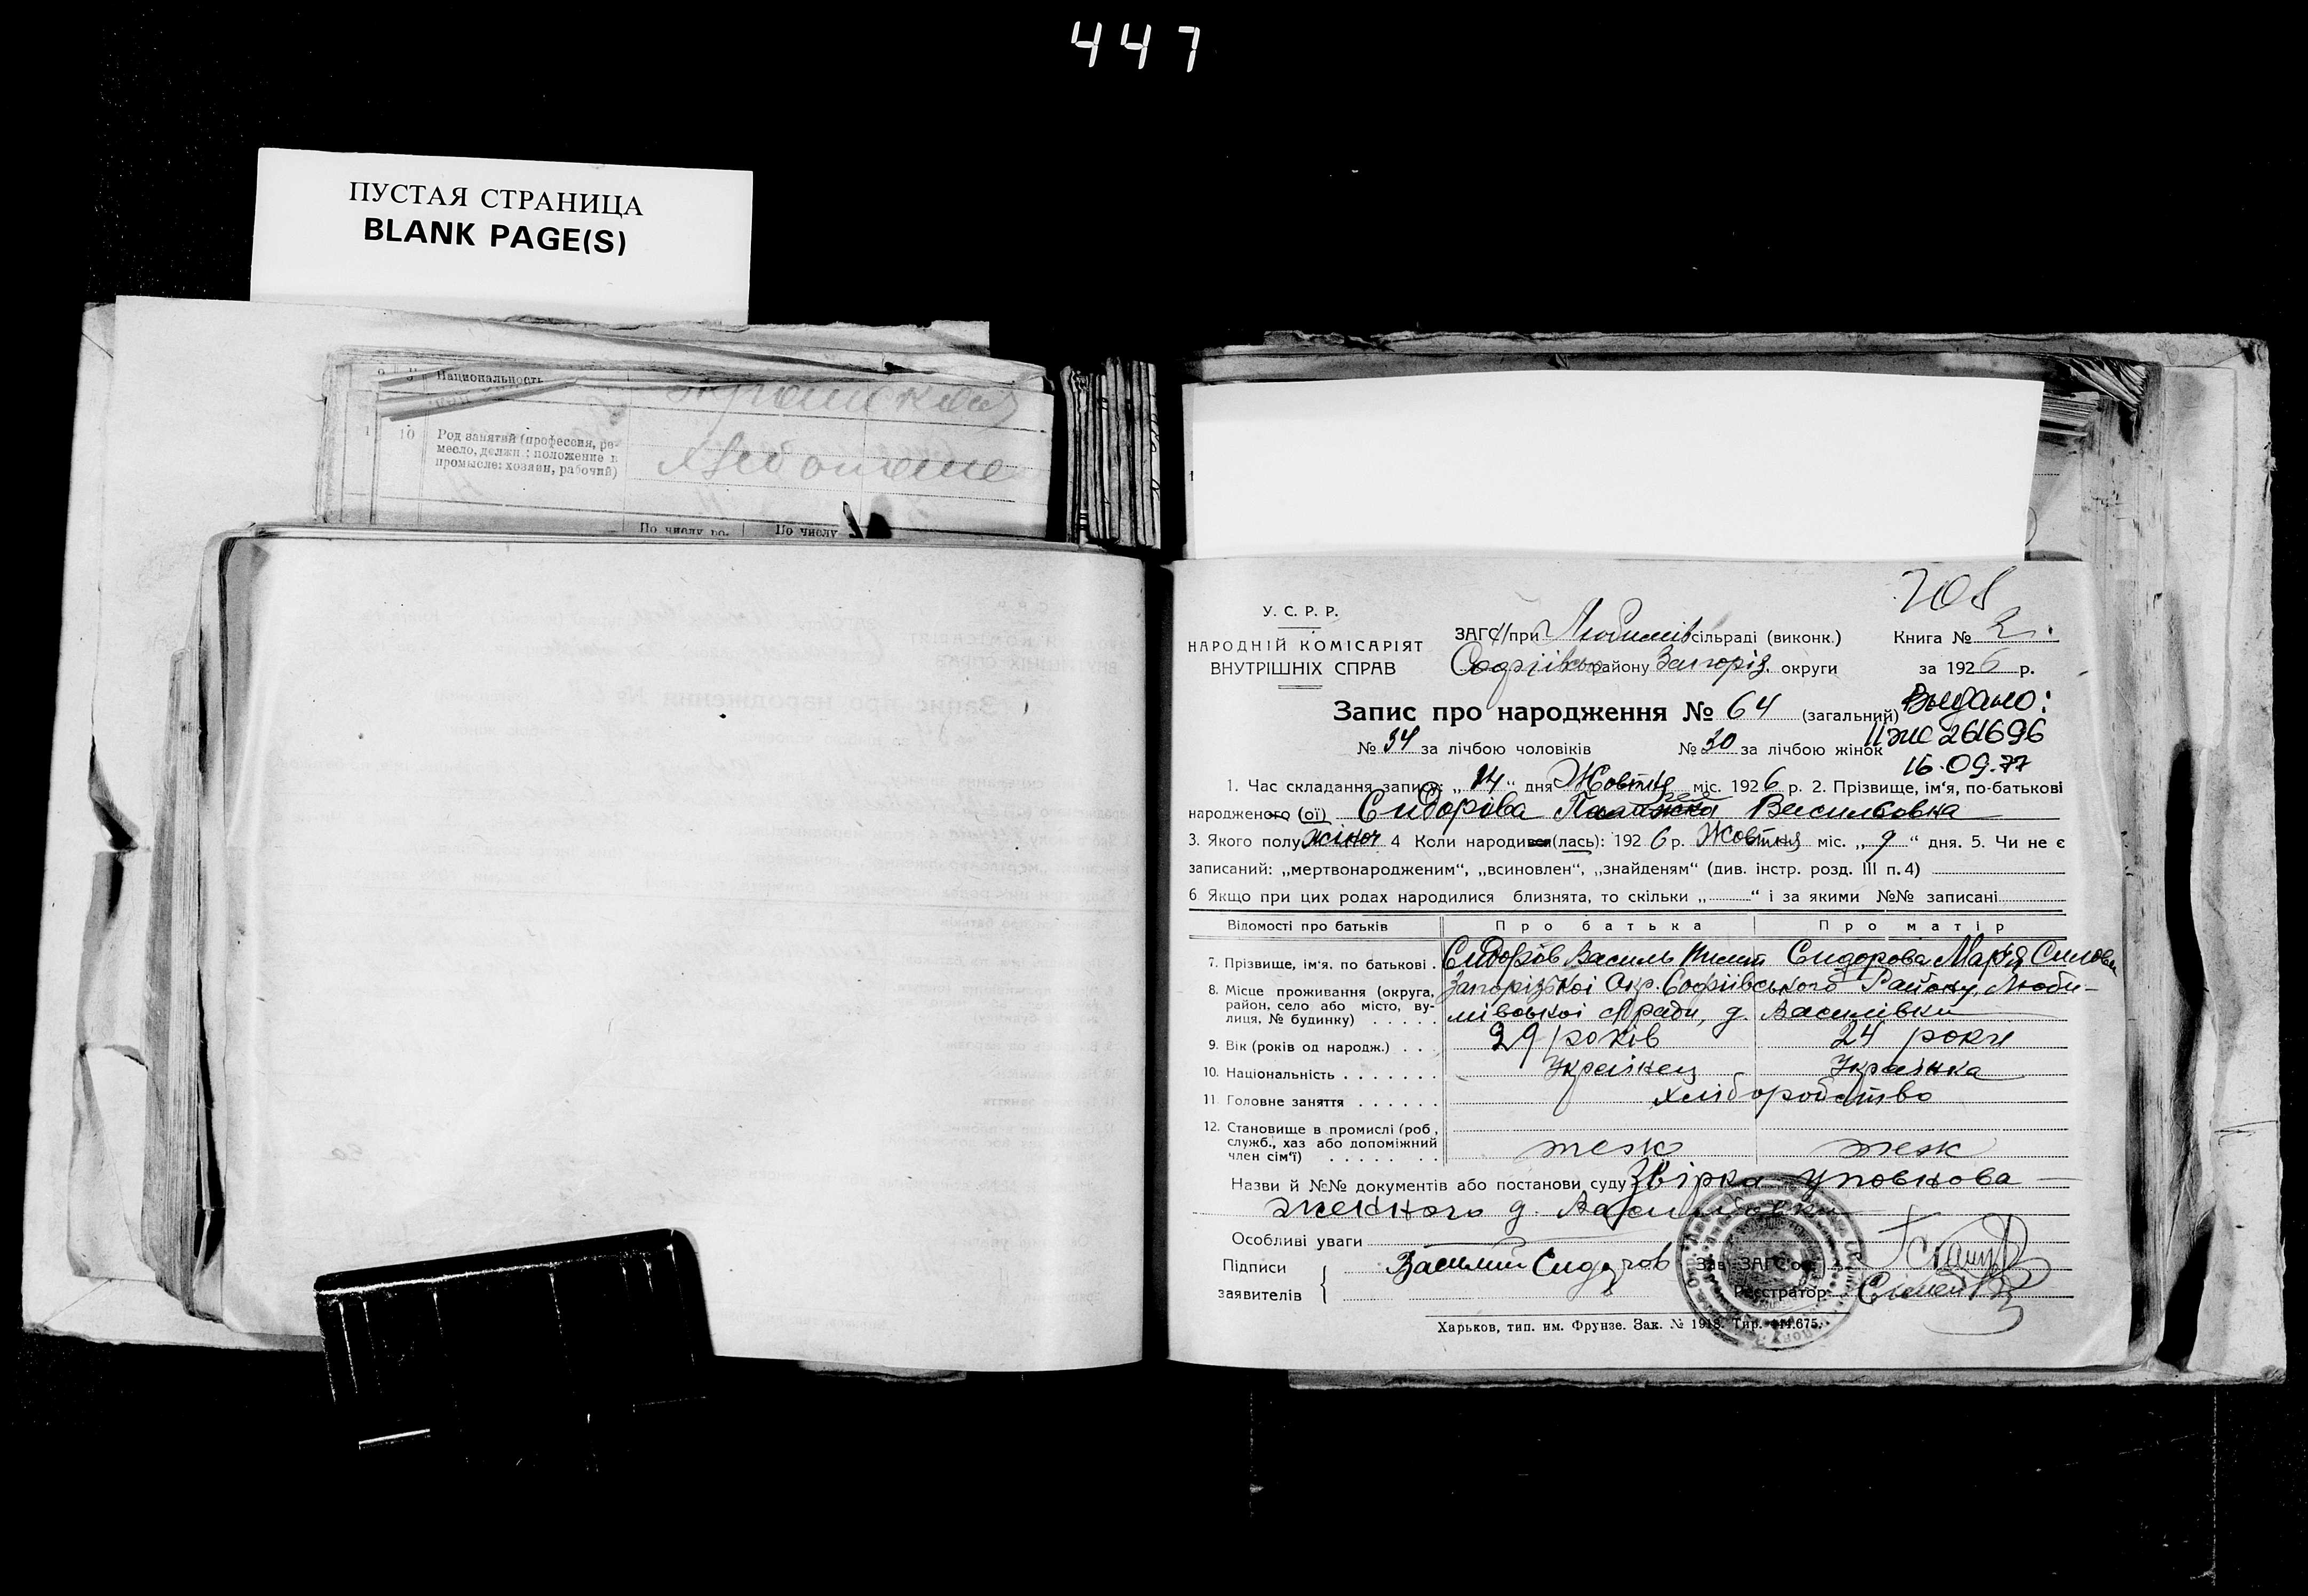 447
ПУСТАЯ СТРАНИЦА
BLANK PAGE(S)
Национальность
10 Род занятий (профессия, ре-
месло, должн.: положение в
промысле: хозяин, рабочий)
По числу ро- По числу
708
У. С. Р. Р.
НАРОДНІЙ КОМІСАРІЯТ
ВНУТРІШНІХ СПРАВ
ЗАГС/при Любимів сільраді (виконк.) Книга № 2.
Софіївсько району Запоріз. округи за 1926 р.
Запис про народження № 64 (загальний) Выдано:
№ 34 за лічбою чоловіків № 30 за лічбою жінок ІІ жс 261696
16.09.77
1. Час складання запису: „14" дня Жовтня міс. 1926 р. 2. Прізвище, ім'я, по-батькові
народженого (ої) Сидорова Васильовна
3. Якого полу жіноч 4 Коли народився (лась): 1926 р. Жовтня міс. „9" дня. 5. Чи не є
записаний: „мертвонародженим", „всиновлен", „знайденям" (див. інстр. розд. III п. 4)
6 Якщо при цих родах народилися близнята, то скільки „ " і за якими №№ записані
Відомості про батьків Про батька Про матір
7. Прізвище, ім'я, по батькові. Сидоров Василь Сидорова Мар'я
8. Місце проживання (округа, Запорізької Окр. Софіївського Району, Люби-
район, село або місто, ву- мівської с/ради, д. Василівки
лиця, № будинку)
9. Вік (років од народж.) 29 років 24 роки
10. Національність Українец Українка
11 Головне заняття хліборобство
12. Становище в промислі (роб,
служб., хаз або допоміжний теж теж
член сім'ї)
Назви й №№ документів або постанови суду Звірка уповнова
женного д. Василівки
Особливі уваги
Підписи Василий Сидоров Зав. ЗАГС'ом
заявителів Реєстратор
Харьков, тип. им. Фрунзе. Зак. № 1918. Тир. 414.675.